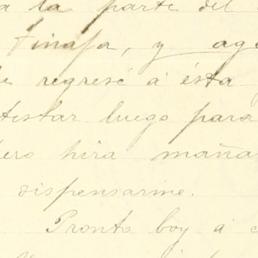 a la parte del
Tinaja, y age
regresé á ésta
testar luego para
pero hira mañan
dispensarme.
Pronto boy á c